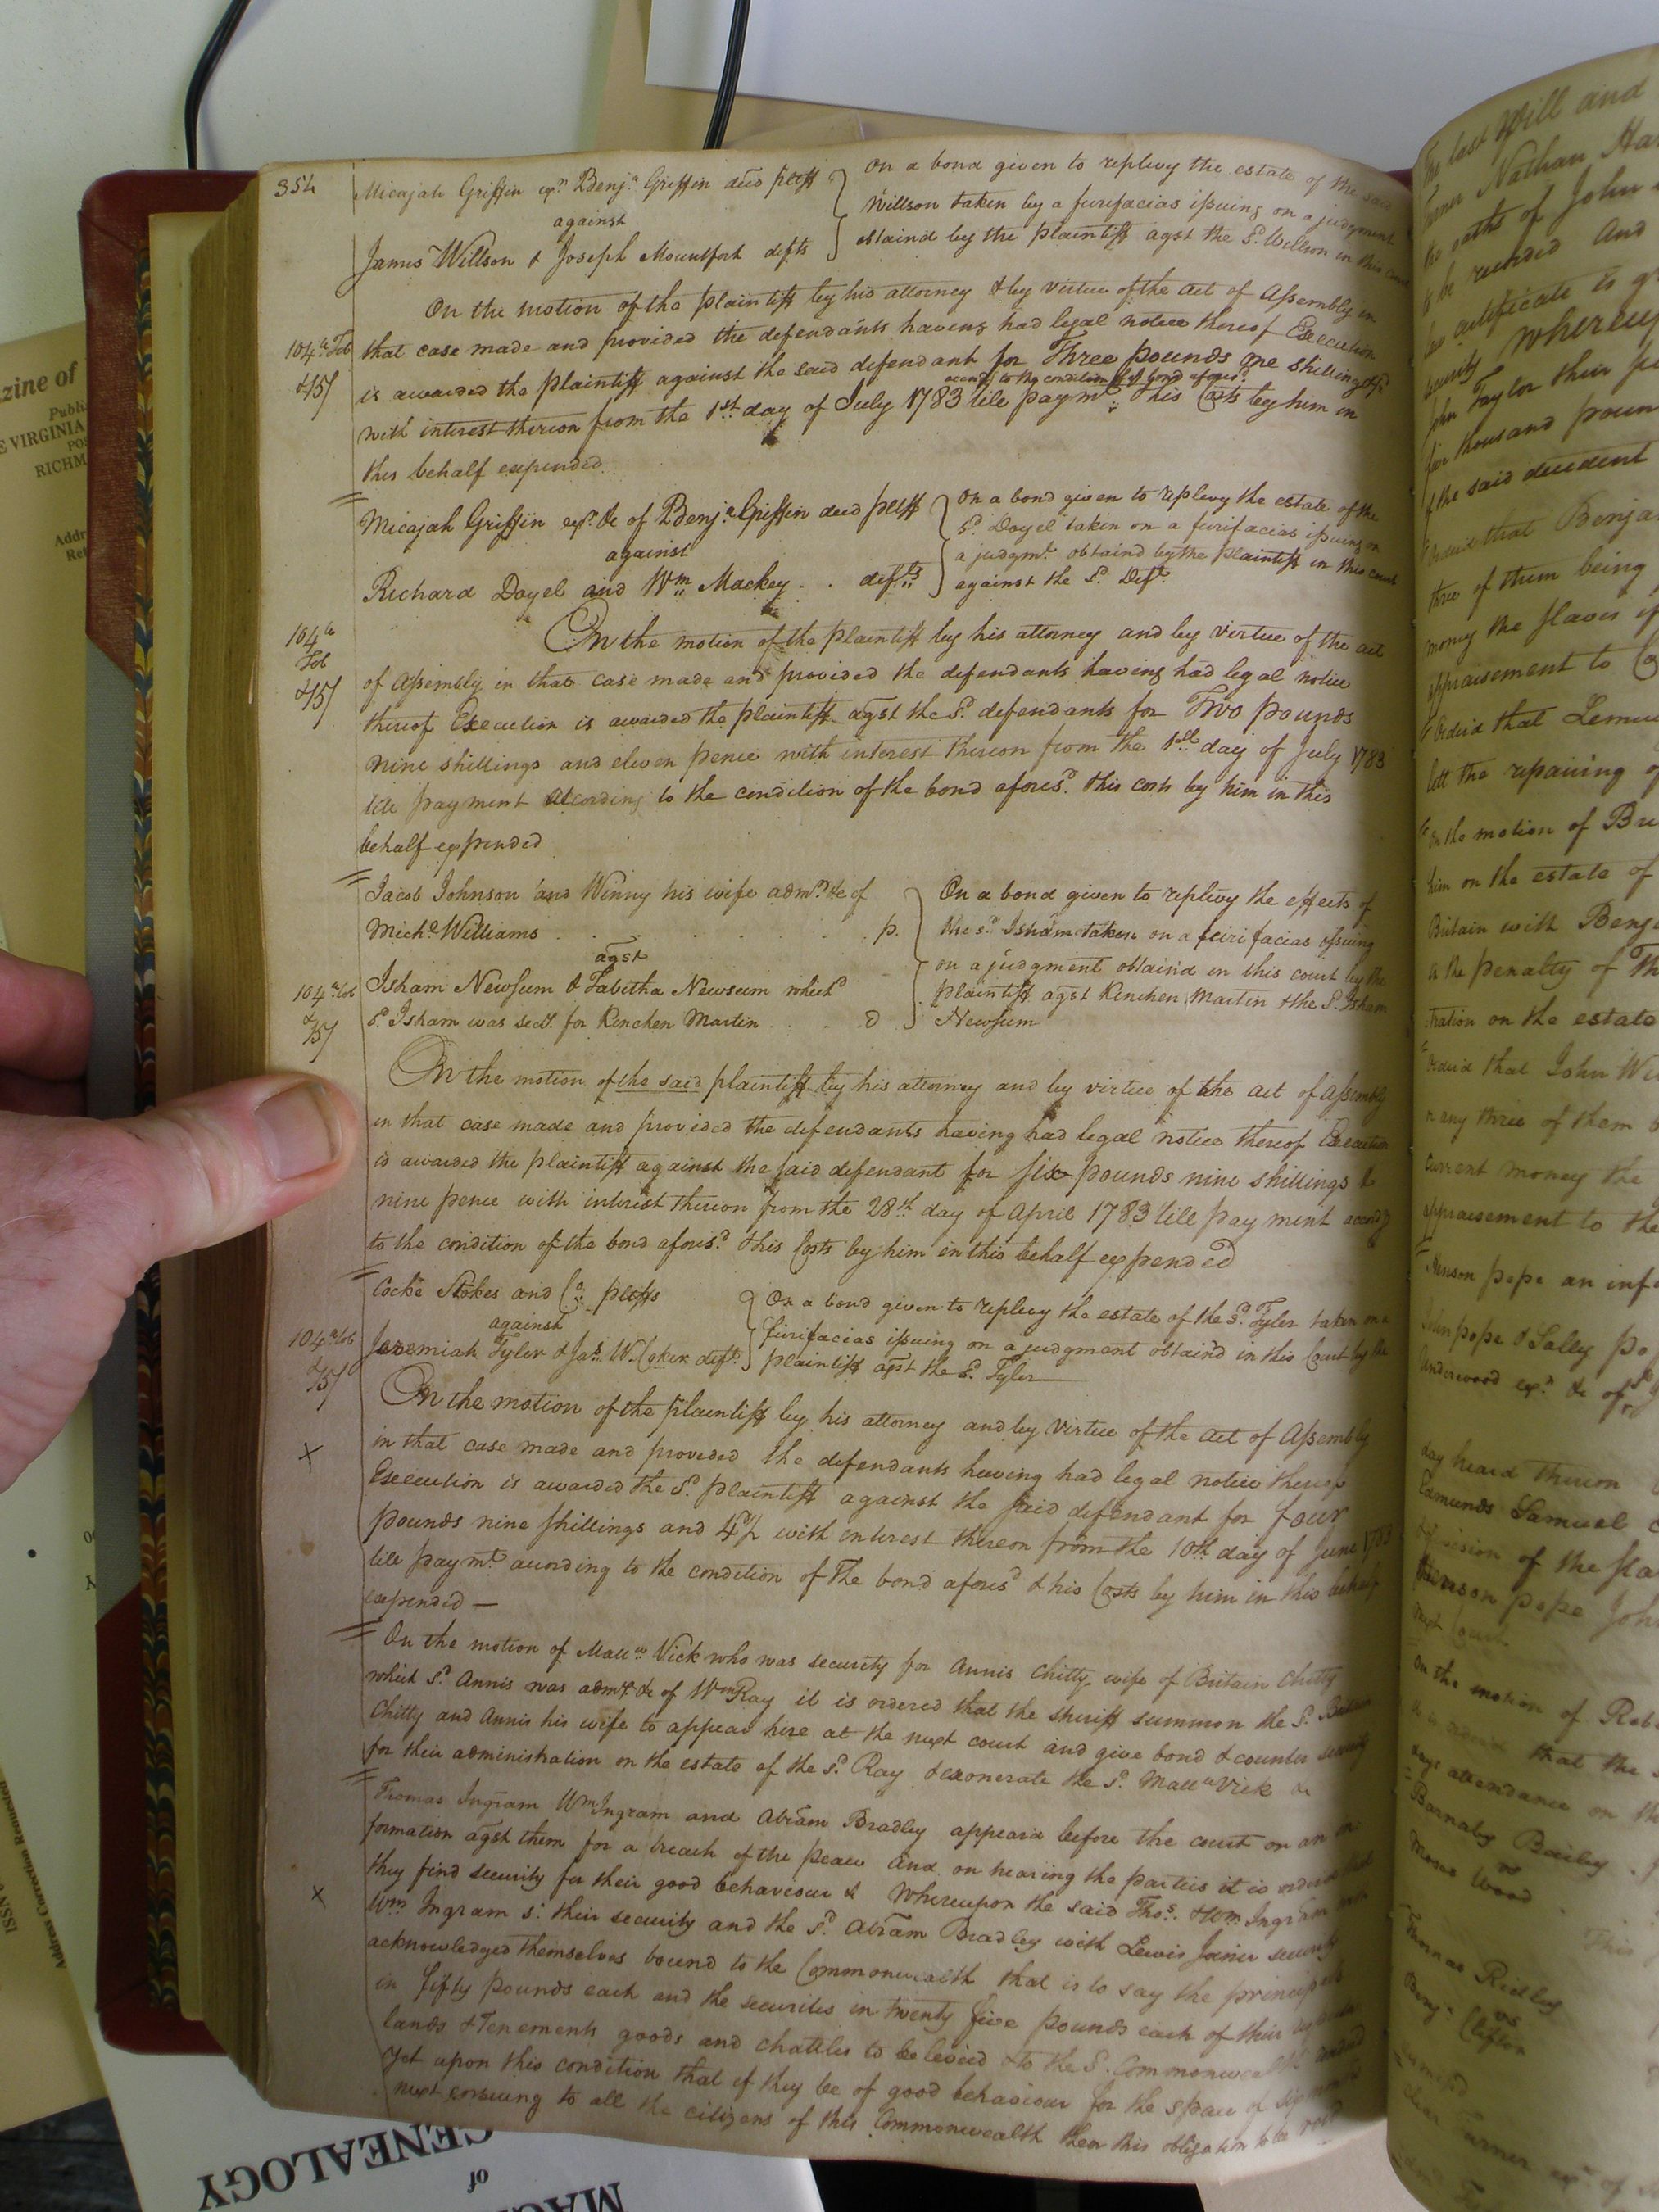 354
Micajah Griffin exr. Benja. Griffin decd pltff
against
James Willson & Joseph Mountfort defts
On a bond given to replevy the estate of the said
Willson taken by a furifacias issuing on a judgment
obtaind by the plaintiff agst the Sd. Willson in this court
On the motion of the plaintiff by his attorney & by virtue of the act of Assembly in
that case made and provided the defendants having had legal notice thereof Execution
is awarded the plaintiff against the said defendant for Three pounds one shilling
accordg to the condition of ye bond aforesd.
with interest thereon from the 1st day of July 1783 till paymt. & his Costs by him in
this behalf expended.
104 Tob
&15/
Micajah Griffin exr. &c of Benja. Griffin decd pltff
against
Richard Doyel and Wm Mackey . . defts
On a bond given to replevy the estate of the
Sd. Doyel taken on a furifacias issuing on
a judgmt. obtaind by the plaintiff in this court
against the Sd. Deft.
On the motion of the plaintiff by his attorney and by virtue of the act
of Assembly in that case made and provided the defendants having had legal notice
thereof Execution is awarded the plaintiff agst the Sd. defendants for Two pounds
nine shillings and eleven pence with interest thereon from the 1st day of July 1783
till payment according to the condition of the bond aforesd. & his costs by him in this
behalf expended
104
Tob
&15/
Jacob Johnson and Winny his wife admrs &c of
Michl Williams . . . . . . p.
agst
Isham Newsum & Tabitha Newsum which
sd. Isham was secty. for Kinchen Martin . . . D
On a bond given to replevy the effects of
the sd. Isham taken on a feirifacias issuing
on a judgment obtaind in this court by the
plaintiff agst Kinchen Martin & the Sd. Isham
Newsum
104 Tob
&
15/
On the motion of the said plaintiff by his attorney and by virtue of the act of Assembly
in that case made and provided the defendants having had legal notice thereof Execution
is awarded the plaintiff against the said defendant for six pounds nine shillings &
nine pence with interest thereon from the 28th day of April 1783 till payment accordg
to the condition of the bond aforesd. & his Costs by him in this behalf expended
Cocke Stokes and Co. pltffs
against
Jeremiah Tyler & Jas. W. Coker defts.
On a bond given to replevy the estate of the Sd. Tyler taken on a
furifacias issuing on a judgment obtaind in this Court by the
plaintiff agst the Sd. Tyler
104 Tob
&15/
On the motion of the plaintiff by his attorney and by virtue of the act of Assembly
in that case made and provided the defendants having had legal notice thereof
Execution is awarded the Sd. plaintiff against the said defendant for four
pounds nine shillings and 4d½ with interest thereon from the 10th day of June 1783
till paymt. according to the condition of the bond aforesd & his Costs by him in this behalf
expended —
X
On the motion of Mattw Vick who was security for Annis Chitty wife of Britain Chitty
which Sd. Annis was admx &c of Wm Ray it is ordered that the sheriff summon the Sd. Britain
Chitty and Annis his wife to appear here at the next court and give bond & counter security
for their administration on the estate of the Sd. Ray & exonerate the Sd. Mattw Vick &c
Thomas Ingram Wm Ingram and Abram Bradley appeard before the court on an in
formation agst them for a breach of the peace and on hearing the parties it is ordered that
they find security for their good behaviour & Whereupon the said Thos. & Wm. Ingram
Wm Ingram sr. their security and the Sd. Abram Bradley with Lewis Joiner security
acknowledged themselves bound to the Commonwealth that is to say the principals
in fifty pounds each and the securities in twenty five pounds each of their
lands & Tenements goods and chattles to be levied & to the Sd. Commonwealth
Yet upon this condition that if they be of good behaviour for the space of six months
next ensuing to all the citizens of this Commonwealth then this obligation to be void
X
The last Will and
Turner Nathan
the oaths of John
to be recorded And
certificate is
security whereup
John Taylor their
thousand poun
of the said decedent
Ordered that Benja
three of them being
money the slaves if
appraisement to
Ordered that Lemu
lett the repairing of
On the motion of
him on the estate of
Britain with Benj
in the penalty of
tration on the estate
Ordered that John
or any three of them
current money the
appraisement to the
pope an inf
pope & Sally
Underwood exr. &c of
day heard Thereon
Edmunds Samuel
division of the sla
pope John
next Court
On the motion of Rob
that the
days attendance on the
Barnaby Bailey
vs
Moses Wood
This
Thomas Ridley
vs
Benja. Clifton
Turner exr. of
zine of
Publi
E VIRGINIA
RICHM
Addr
Ret
Address Correction Requested
ISSN
GENEALOGY
of
MAG